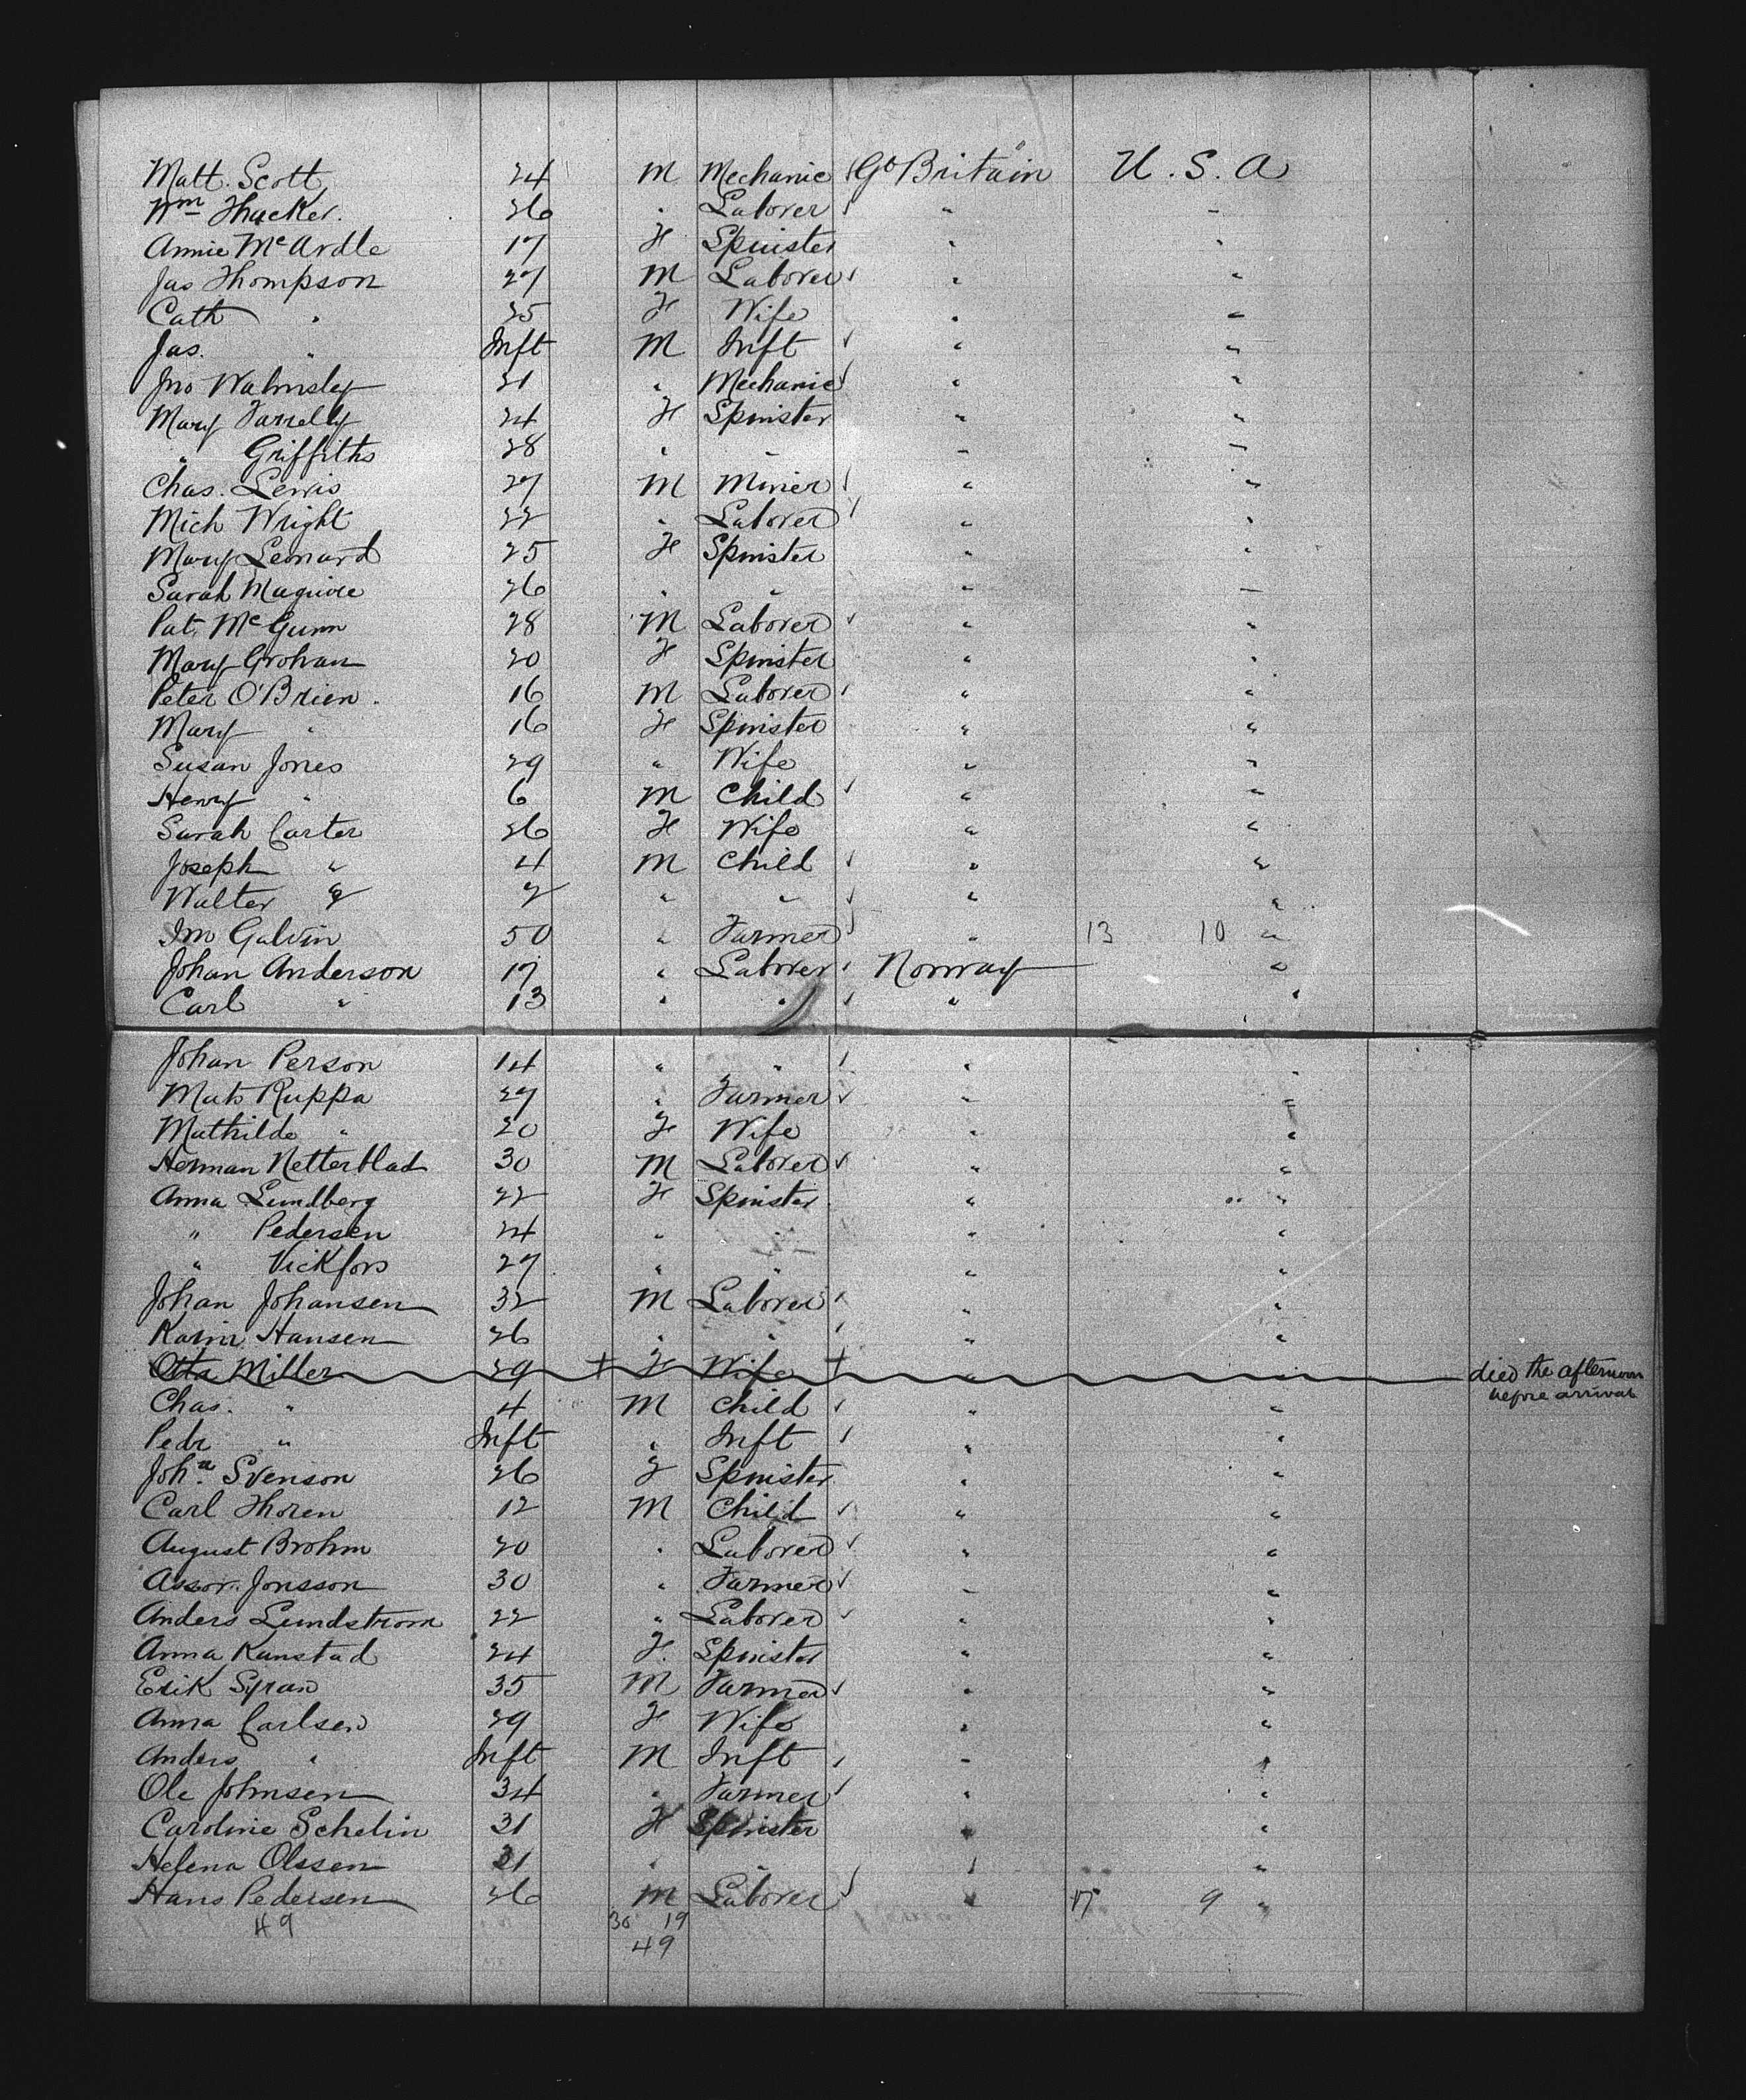 Matt. Scott 24 M Mechanic Gt Britain U. S. A
Wm Thacker. 26 " Laborer " "
Annie McArdle 17 F Spinster " "
Jas Thompson 27 M Laborer " "
Cath " 25 F Wife " "
Jas. " Inft M Inft " "
Jno Walmsley 21 " Mechanic " "
Mary Farrelly 24 F Spinster " "
" Griffiths 28 " " " "
Chas. Lewis 27 M Miner " "
Mich Wright 22 " Laborer " "
Mary Leonard 25 F Spinster " "
Sarah Maguire 26 " " " "
Pat. McGunn 28 M Laborer " "
Mary Grohan 20 F Spinster " "
Peter O'Brien. 16 M Laborer " "
Mary " 16 F Spinster " "
Susan Jones 29 " Wife " "
Henry " 6 M Child " "
Sarah Carter 26 F Wife " "
Joseph " 4 M Child " "
Walter " 2 " " " "
Galvin 50 " Farmer " 13 10 "
Johan Anderson 17 " Laborer Norway "
Carl " 13 " " " "
Johan Person 14 " " " "
Mats Ruppa 27 " Farmer " "
Mathilde " 20 F Wife " "
Herman Netterblad 30 M Laborer " "
Anna Lundberg 22 F Spinster " "
" Pedersen 24 " " " "
" Vickfors 27 " " " "
Johan Johansen 32 M Laborer " "
Karin Hansen 26 " " " "
Otta Miller 29 + F Wife + " " died the afternoon
before arrival
Chas. " 4 M Child " "
Pedr " Inft " Inft " "
Joha Svenson 26 F Spinster " "
Carl Thoren 12 M Child " "
August Brohm 20 " Laborer " "
Assor. Jonsson 30 " Farmer " "
Anders Lundstrom 22 " Laborer " "
Anna Kunstad 24 F. Spinster " "
Erik Syran 35 M Farmer " "
Anna Carlsen 29 F Wife " "
Anders " Inft M Inft " "
Ole Johnsen 34 " Farmer " "
Caroline Schelin 31 F Spinster " "
Helena Olssen 21 " " " "
Hans Pedersen 26 M Laborer " 17 9 "
49 30 19
49